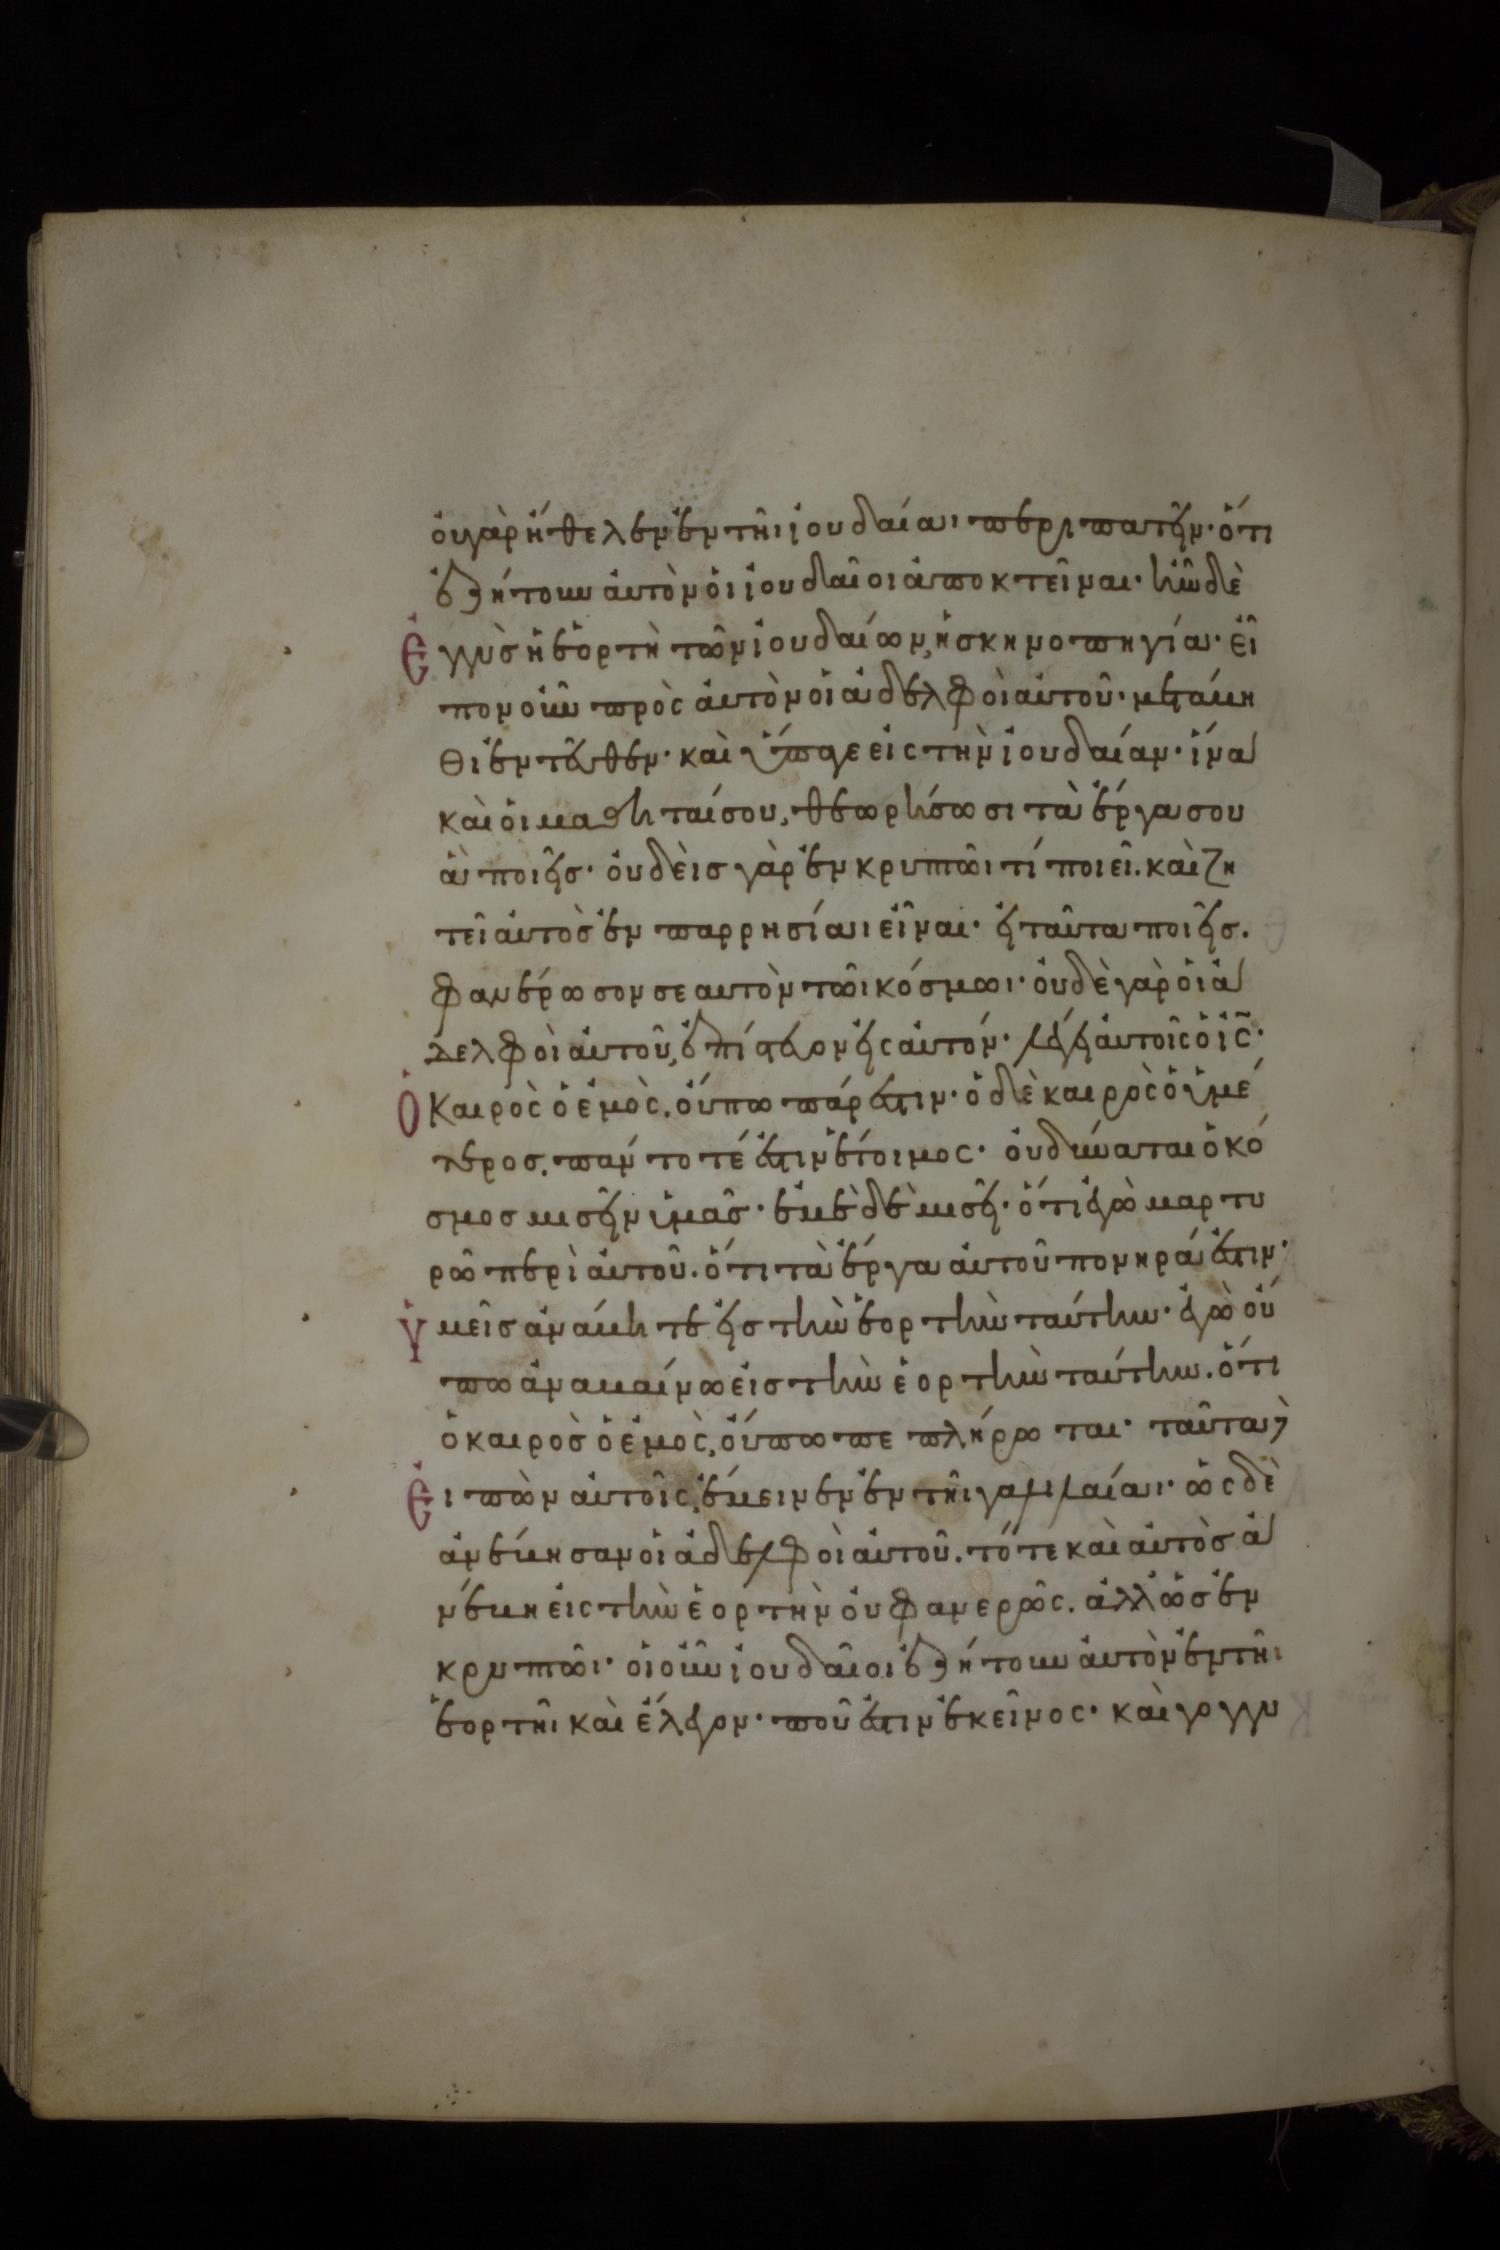 ὀυγὰρ ἤθελεν ἐν τῆι ἰουδαίαι περιπατεῖν· ὅτι
ἐζήτουν ἀυτὸν ὁι ἰουδαῖοι ἀποκτεῖναι· ἦν δὲ
ἐγγὺσ ἡ ἑορτὴ τῶν ἰουδαίων, ἡ σκηνοπηγία· εἶ
πον οὖν πρὸς ἀυτὸν ὁι ἀδελφοὶ αὐτοῦ· μετάβη
θι ἐντεῦθεν· καὶ ὕπαγε εἰς τὴν ἰουδαίαν· ἵνα
καὶ ὁι μαθηταί σου, θεωρήσωσι τὰ ἔργα σου
ἃ ποιεῖσ· ὀυδεὶσ γὰρ ἐν κρυπτῶι τί ποιεῖ. καὶ ζη
τεῖ ἀυτὸσ ἐν παρρησίαι εἶναι· εἰ ταῦτα ποιεῖσ.
φανέρωσον σεαυτὸν τῶι κόσμωι· ὀυδὲ γὰρ ὁι ἀ
δελφοὶ ἀυτοῦ, ἐπίστευον εἰς αὐτόν· λέγει ἀυτοῖς ὁ ις·
ὁ Καιρὸς ὁ ἐμὸς, ὄυπω πάρεστιν· ὁ δὲ καιρὸς ὁ ὑμέ
τεροσ, πάντοτέ ἐστιν ἕτοιμος· ὀυ δύναται ὁ κό
σμοσ μισεῖν ὑμᾶσ· ἐμὲ δὲ μισεῖ· ὅτι ἐγὼ μαρτυ
ρῶ περὶ ἀυτοῦ. ὅτι τὰ ἔργα ἀυτοῦ πονηρά ἐστιν·
ὑμεῖσ ἀνάβητε εἰσ τὴν ἑορτὴν ταύτην· ἐγὼ ὄυ
πω ἀναβαίνω εἰσ τὴν ἑορτὴν ταύτην. ὅτι
ὁ καιρὸσ ὁ ἐμὸς, ὄυπω πεπλήρωται· ταῦτα δὲ
ἐιπὼν ἀυτοῖς, ἔμεινεν ἐν τῆι γαλιλαίαι· ὡς δὲ
ἀνέβησαν ὁι ἀδελφοὶ ἀυτοῦ. τότε καὶ ἀυτὸσ ἀ
νέβη εἰς τὴν ἑορτὴν ὀυ φανερῶς. ἀλλ ὡσ ἐν
κρυπτῶι· ὁι οὖν ἰουδαῖοι ἐζήτουν ἀυτὸν ἐν τῆι
ἑορτῆι καὶ ἔλεγον· ποῦ ἐστιν ἐκεῖνος· καὶ γογγυ